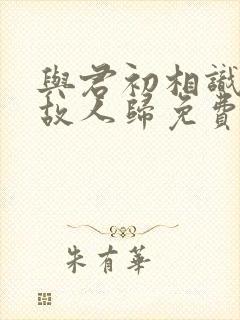 與君初相識
故人歸免費
朱有華